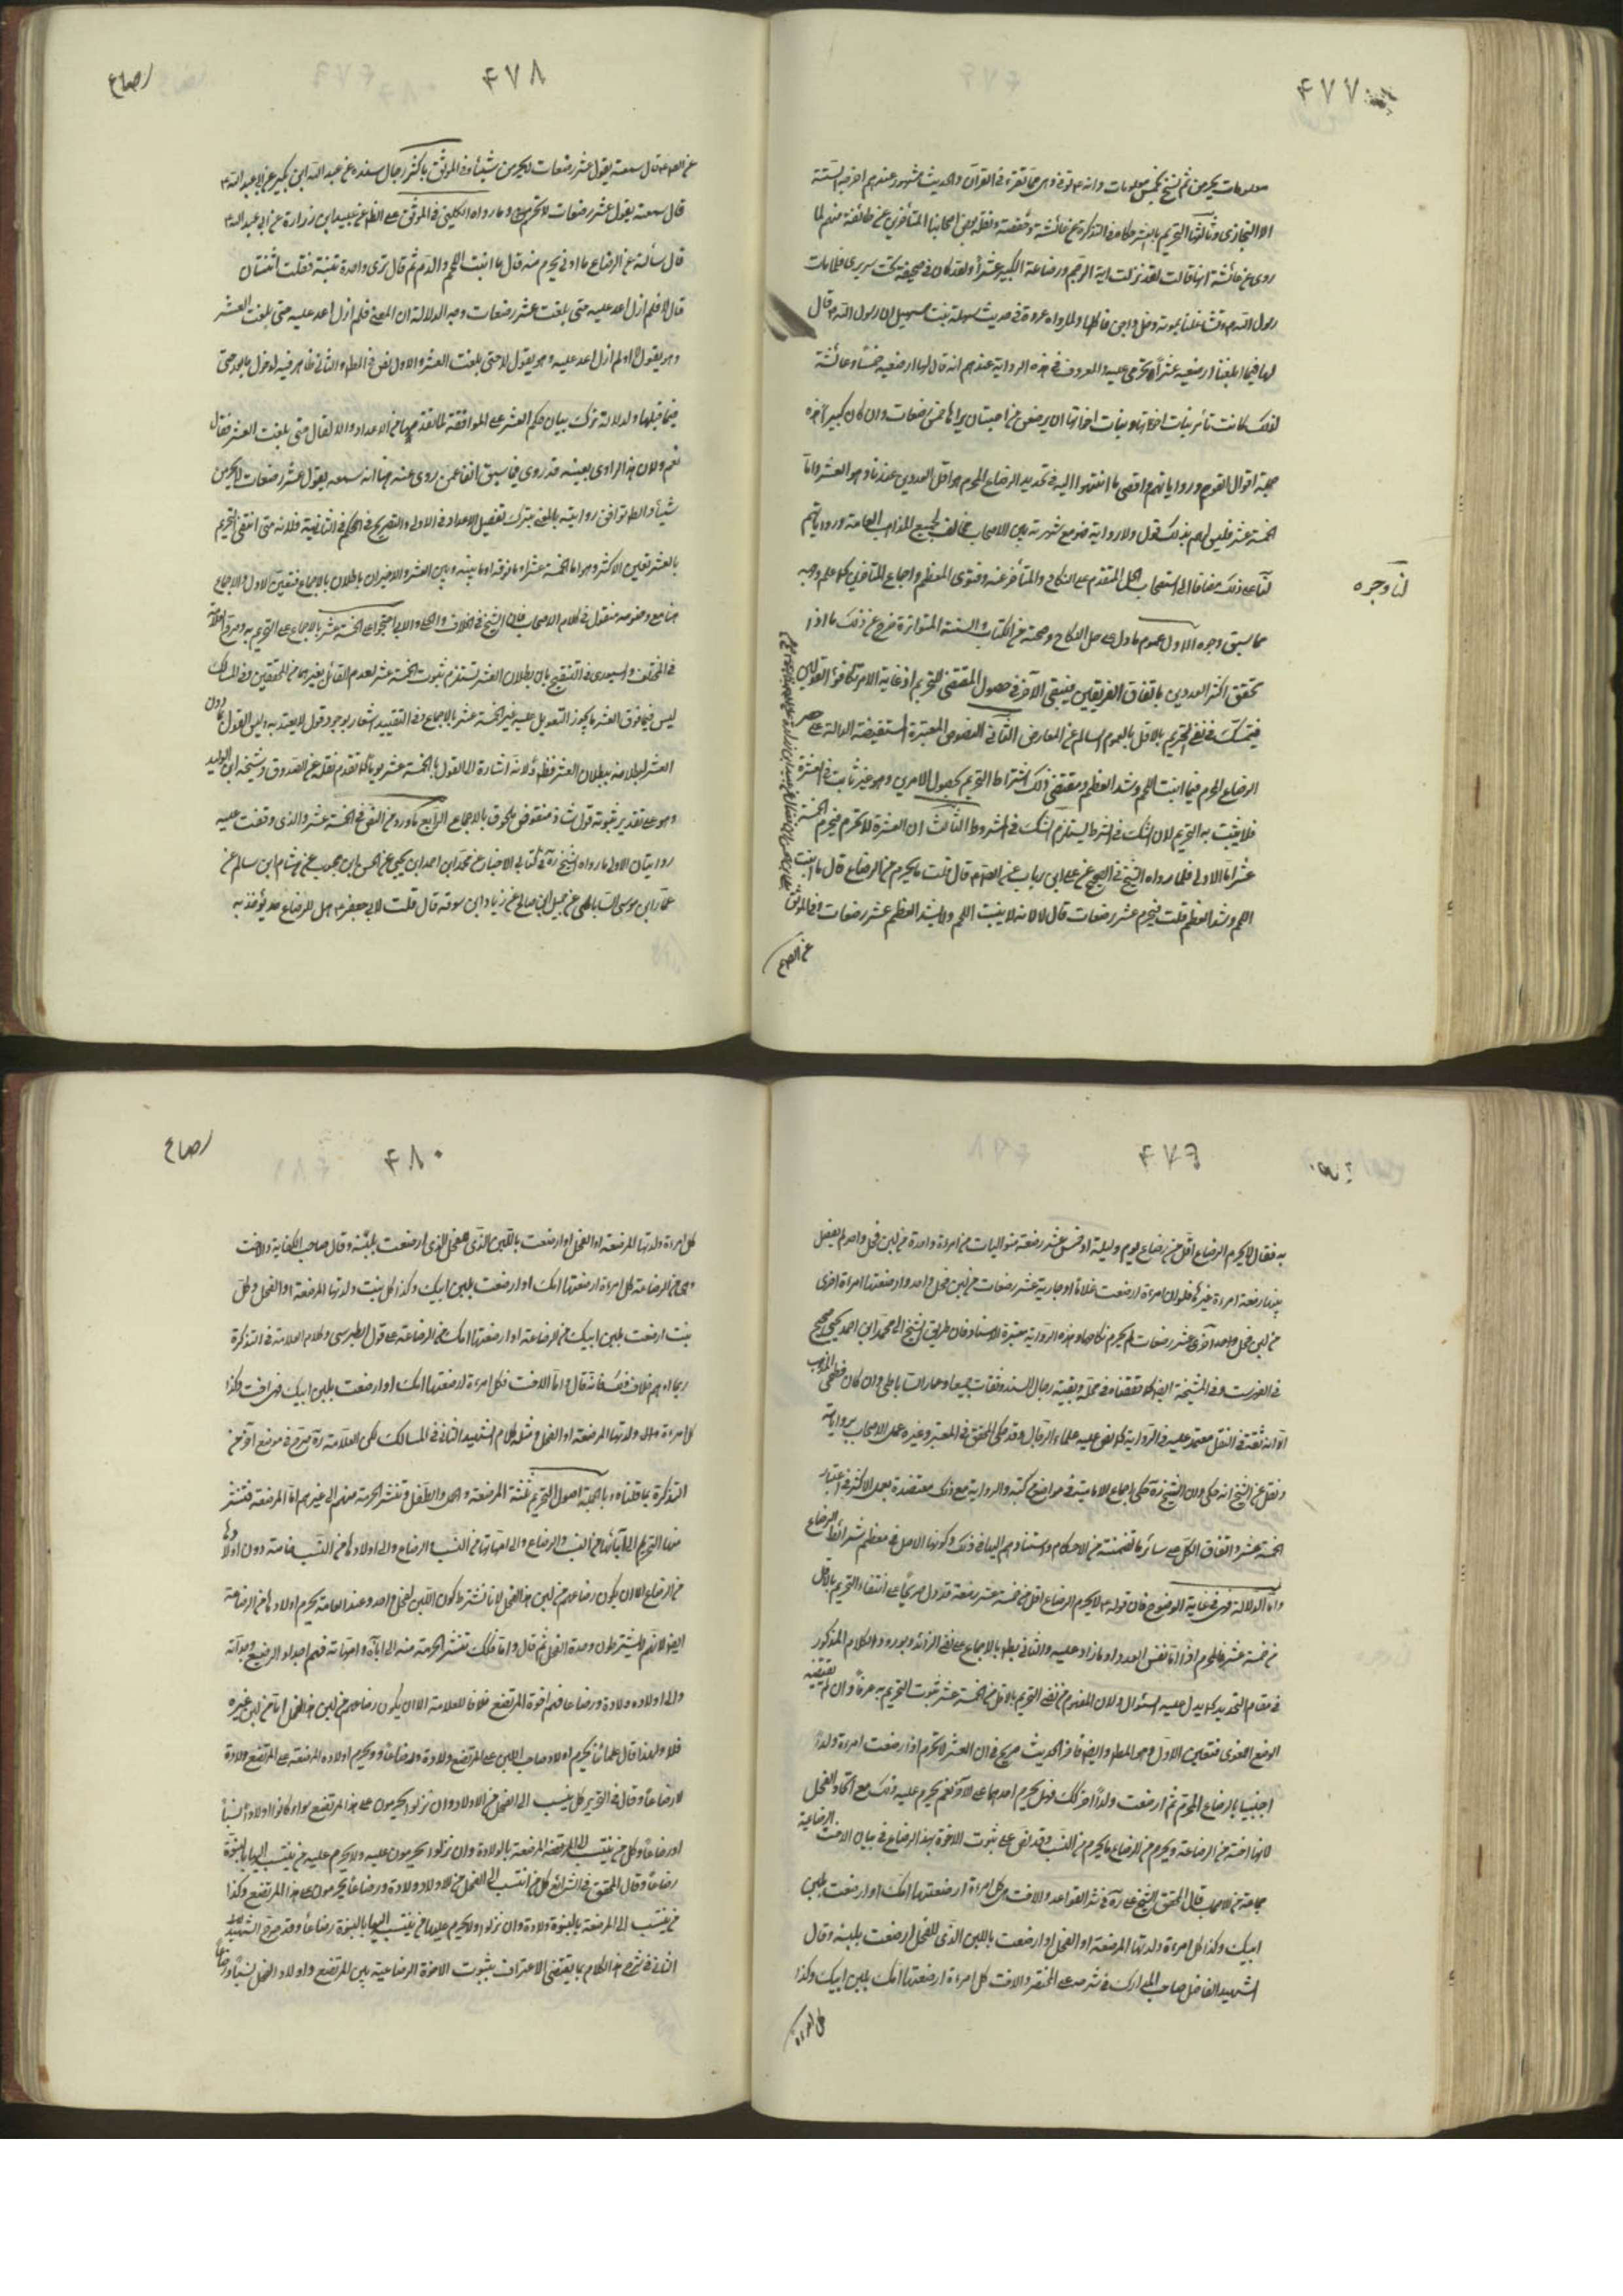 ۴۷۷
معلومات يحرمن ثم نسخ بخمس معلومات وانه ص توفى وهى مما تقرء فى القرآن والحديث مشهور عندهم اخرجه الستة
الا البخارى وثالثها التحريم بالعشر حكاه فى التذكرة عن عائشة وحفصة ونقله بعض اصحابنا المتأخرين عن طائفة منهم لما
روى عن عائشة انها قالت لقد نزلت اية الرجم ورضاعة الكبير عشراً ولقد كان فى صحيفة تحت سريرى فلما مات
رسول الله ص وتشاغلنا بموته دخل داجن فاكلها ولما رواه عروة فى حديث سهلة بنت سهيل ان رسول الله ص قال
لها فيما بلغنا ارضعيه عشراً تحرمى عليه والمعروف فى هذه الرواية عندهم انه قال لها ارضعيه خمساً وعائشة
لذلك كانت تأمر بنات اخواتها وبنات اخوتها ان يرضعن من احبت ان يراها خمس رضعات وان كان كبيرا هذه
جملة اقوال القوم ورواياتهم واقصى ما انتهوا اليه فى تحديد الرضاع المحرم هو اقل العددين عندنا وهو العشر واما
الخمسة عشر فليس لهم بذلك قول ولا رواية فهو مع شهرته بين الاصحاب مخالف لجميع المذاهب العامة ورواياتهم
لنا على ذلك مضافا الى استصحاب الحل المتقدم على النكاح والمتأخر عنه وفتوى المعظم واجماع المتأخرين كما علم وجهه
لنا وجوه
مما سبق وجوه الاول عموم ما دل على حل النكاح وصحته من الكتاب والسنة المتواترة خرج عن ذلك ما اذا
تحقق اكثر العددين باتفاق الفريقين فيبقى الآخر فى حصول المقتضى للتحريم اذ غاية الامر تكافؤ القولين
فيتمسك فى نفى التحريم بالاقل بالعموم السالم عن المعارض الثانى النصوص المعتبرة المستفيضة الدالة على حصر
الرضاع المحرم فيما انبت اللحم وشد العظم ومقتضى ذلك اشتراط التحريم بحصول الامرين وهو غير ثابت فى العشرة
فلا يثبت به التحريم لان الشك فى الشرط يستلزم الشك فى المشروط الثالث ان العشرة لا تحرم فيحرم الخمسة
عشر اما الاولى فلما رواه الشيخ فى الصحيح عن على ابن رياب عن الصادق قال قلت ما يحرم من الرضاع قال ما انبت
اللحم وشد العظم قلت فيحرم عشر رضعات قال لا لانه لا ينبت اللحم ولا يشد العظم عشر رضعات وفى الموثق
۴۷۸
رضاع
قال سمعته يقول عشر رضعات لا يحرمن شيئاً وفى الموثق باكثر رجال سنده عن عبد الله ابن بكير عن ابى عبد الله ع
قال سمعته يقول عشر رضعات لا تحرم وما رواه الكلينى فى الموثق على الظاهر عن عبيد ابن زرارة عن ابى عبد الله ع
قال سألته عن الرضاع ما ادنى ما يحرم منه قال ما انبت اللحم والدم ثم قال ترى واحدة تنبته فقلت اثنتان
قال لا فلم ازل اعد عليه حتى بلغت عشر رضعات وجه الدلالة ان المعنى فلم ازل اعد عليه حتى بلغت العشر
وهو يقول لا او لم ازل اعد عليه وهو يقول لا حتى بلغت العشر والاول نص فى المطلوب والثانى ظاهر فيه لدخول ما بعد حتى
فيما قبلها ولدلالة ترك بيان حكم العشر على الموافقة لما تقدمها من الاعداد والا لقال حتى بلغت العشر فقال
نعم ولان هذا الراوى بعينه قد روى فيما سبق انفا عمن روى عنه هنا انه سمعه يقول عشر رضعات لا يحرمن
شيئاً والظاهر توافق روايتيه بالمعنى بترك تفصيل الاعداد فى الاولى والتصريح بالحكم فى الثانية فلانه متى انتفى التحريم
بالعشر تعين الاكثر وهو اما الخمسة عشر او ما فوقه او ما بينه وبين العشر والاخيران باطلان بالاجماع فتعين الاول والاجماع
فى المختلف والسيورى فى التنقيح بان بطلان العشر تستلزم ثبوت الخمسة عشر لعدم القائل بغيرهما من المحققين وفى المسالك
ليس فيما فوق العشر ما يجوز التعويل عليه غير الخمسة عشر بالاجماع وفى التقييد اشعار بوجود قول لا يعتد به وليس القول بما دون
العشر لبطلانه ببطلان العشر فظهر انه اشارة الى القول بالخمسة عشر يوما كما تقدم نقله عن الصدوق وشيخه ابن الوليد
وهو على تقدير ثبوته قول شاذ منقوض ملحوق بالاجماع الرابع ما ورد من النص فى الخمسة عشر والذى وقفت عليه
روايتان الاولى ما رواه الشيخ ره فى كتابى الاخبار عن محمد ابن احمد ابن يحيى عن الحسن ابن محبوب عن هشام ابن سالم عن
عمار ابن موسى الساباطى عن جميل ابن صالح عن زياد ابن سوقة قال قلت لابى جعفر ع هل للرضاع حد يؤخذ به
۴۷۹
به فقال لا يحرم الرضاع اقل من رضاع يوم وليلة او خمس عشر رضعة متواليات من امراة واحدة من لبن فحل واحد لم يفصل
بينها رضعة امرءة غيرها فلو ان امرءة ارضعت غلاما او جارية عشر رضعات من لبن فحل واحد وارضعتها امرءة اخرى
من لبن فحل واحد اخرى عشر رضعات لم يحرم نكاحهما وهذه الرواية معتبرة الاسناد فان طريق الشيخ الى محمد ابن احمد يحيى صحيح
فى الفهرست وفى المشيخة ايضا كما حققناه فى محله وبقية رجال السند ثقات جميعا وعمار الساباطى وان كان فطحى المذهب
الا انه ثقة فى النقل معتمد عليه فى الرواية كما نص عليه علماء الرجال وقد حكى المحقق فى المعتبر وغيره عمل الاصحاب برواياته
ونقل عن الشيخ انه حكى ان الشيخ ره حكى اجماع الامامية فى مواضع كتبه والرواية مع ذلك معتضدة بعمل الاكثر فى اعتبار
الخمسة عشر واتفاق الكل على سائر ما تضمنته من الاحكام واستنادهم اليها فى ذلك وكونها الاصل فى معظم شرائط الرضاع
واما الدلالة فهى فى غاية الوضوح فان قوله ع لا يحرم الرضاع اقل من خمسة عشر رضعة قد دل صريحاً على انتفاء التحريم بالاقل
من خمسة عشر فالمحرم اذاً اما نفس العدد او ما زاد عليه والثانى بط بالاجماع على نفى الزائد وبوروده الكلام المذكور
فى مقام التحديد كما يدل عليه السؤال ولان المفهوم من نفى التحريم بالاقل من الخمسة عشر ثبوت التحريم به عرفاً وان لم يقتضيه
الوضع اللغوى فتعين الاول وهو المطلوب وايضا فاخر الحديث صريح فى ان العشر لا تحرم اذا ارضعت امرءة ولداً
اجنبيا بالرضاع المحرم ثم ارضعت ولداً اخر كذلك فهل يحرم احدهما على الاخر نعم يحرم عليه ذلك مع اتحاد الفحل
لانها اخته من الرضاعة ويحرم من الرضاع ما يحرم من النسب وقد نص على ثبوت الاخوة بهذا الرضاع فى بيان الاخت الرضاعية
جماعة من الاصحاب قال المحقق الشيخ على ره فى شرح القواعد والاخت هى كل امرءة ارضعتها امك او ارضعت بلبن
ابيك وكذا كل امرءة ولدتها المرضعة او الفحل او ارضعت باللبن الذى للفحل ارضعت بلبنه وقال
الشهيد الفاضل صاحب المدارك فى شرحه على المختصر والاخت كل امرءة ارضعتها امك بلبن ابيك وكذا
كل امرءة
۴۸۰
رضاع
كل امرءة ولدتها المرضعة او الفحل او ارضعت باللبن الذى هو للفحل الذى ارضعت بلبنه وقال صاحب الكفاية والاخت
هى من الرضاعة كل امرءة ارضعتها امك او ارضعت بلبن ابيك وكذا كل بنت ولدتها المرضعة او الفحل وكل
بنت ارضعت بلبن ابيك من الرضاعة او ارضعتها امك من الرضاعة على قول الطبرسى وكلام العلامة فى التذكرة
ربما اوهم خلاف ذلك فانه قال واما الاخت فكل امرءة ارضعتها امك او ارضعت بلبن ابيك فهى اخت وكذا
كل امرءة ولدتها المرضعة او الفحل ومثله كلام الشهيد الثانى فى المسالك لكن العلامة ره صرح فى موضع اخر من
التذكرة بما قلناه وبالجملة اصول التحريم ثلثة المرضعة والفحل والطفل وتنشر الحرمة منهم الى غيرهم اما المرضعة فتنشر
منها التحريم الى آبائها من النسب والرضاع والى امهاتها من النسب الرضاع والى اولادها من النسب خاصة دون اولادها
من الرضاع الا ان يكون رضاعهم من لبن هذا الفحل لانا نشترط كون اللبن لفحل واحد وعند العامة يحرم اولادها من الرضاعة
ايضا لانهم لا يشترطون وحدة الفحل ثم قال واما الفحل فكذلك تنتشر الحرمة منه الى ابائه وامهاته فهم اجداد الرضيع وجداته
والى اولاده ولادة ورضاعا فهم اخوة المرتضع خلافا للعلامة الا ان يكون رضاعهم من لبن هذا الفحل اما من لبن غيره
فلا ولهذا قال علمائنا يحرم اولاد صاحب اللبن على المرتضع ولادة ورضاعا ويحرم اولاد المرضعة على المرتضع ولادة
لا رضاعا وقال فى التحرير كل من ينسب الى الفحل من الاولاد وان نزلوا يحرمون على هذا المرتضع سواء كانوا اولادا نسبا
او رضاعا وكل من ينتسب الى المرضعة بالولادة وان نزلوا يحرمون عليه ولا يحرم عليه من ينتسب اليها بالبنوة
رضاعا وقال المحقق فى الشرائع كل من انتسب الى الفحل من الاولاد ولادة ورضاعا يحرمون على هذا المرتضع وكذا
من ينتسب الى المرضعة بالبنوة ولادة وان نزلوا ولا يحرم عليه من ينتسب اليها بالبنوة رضاعا وقد صرح الشهيد
الثانى فى شرح هذا الكلام بما يقتضى الاعتراف بثبوت الاخوة الرضاعية بين المرتضع واولاد الفحل نسباً ورضاعاً